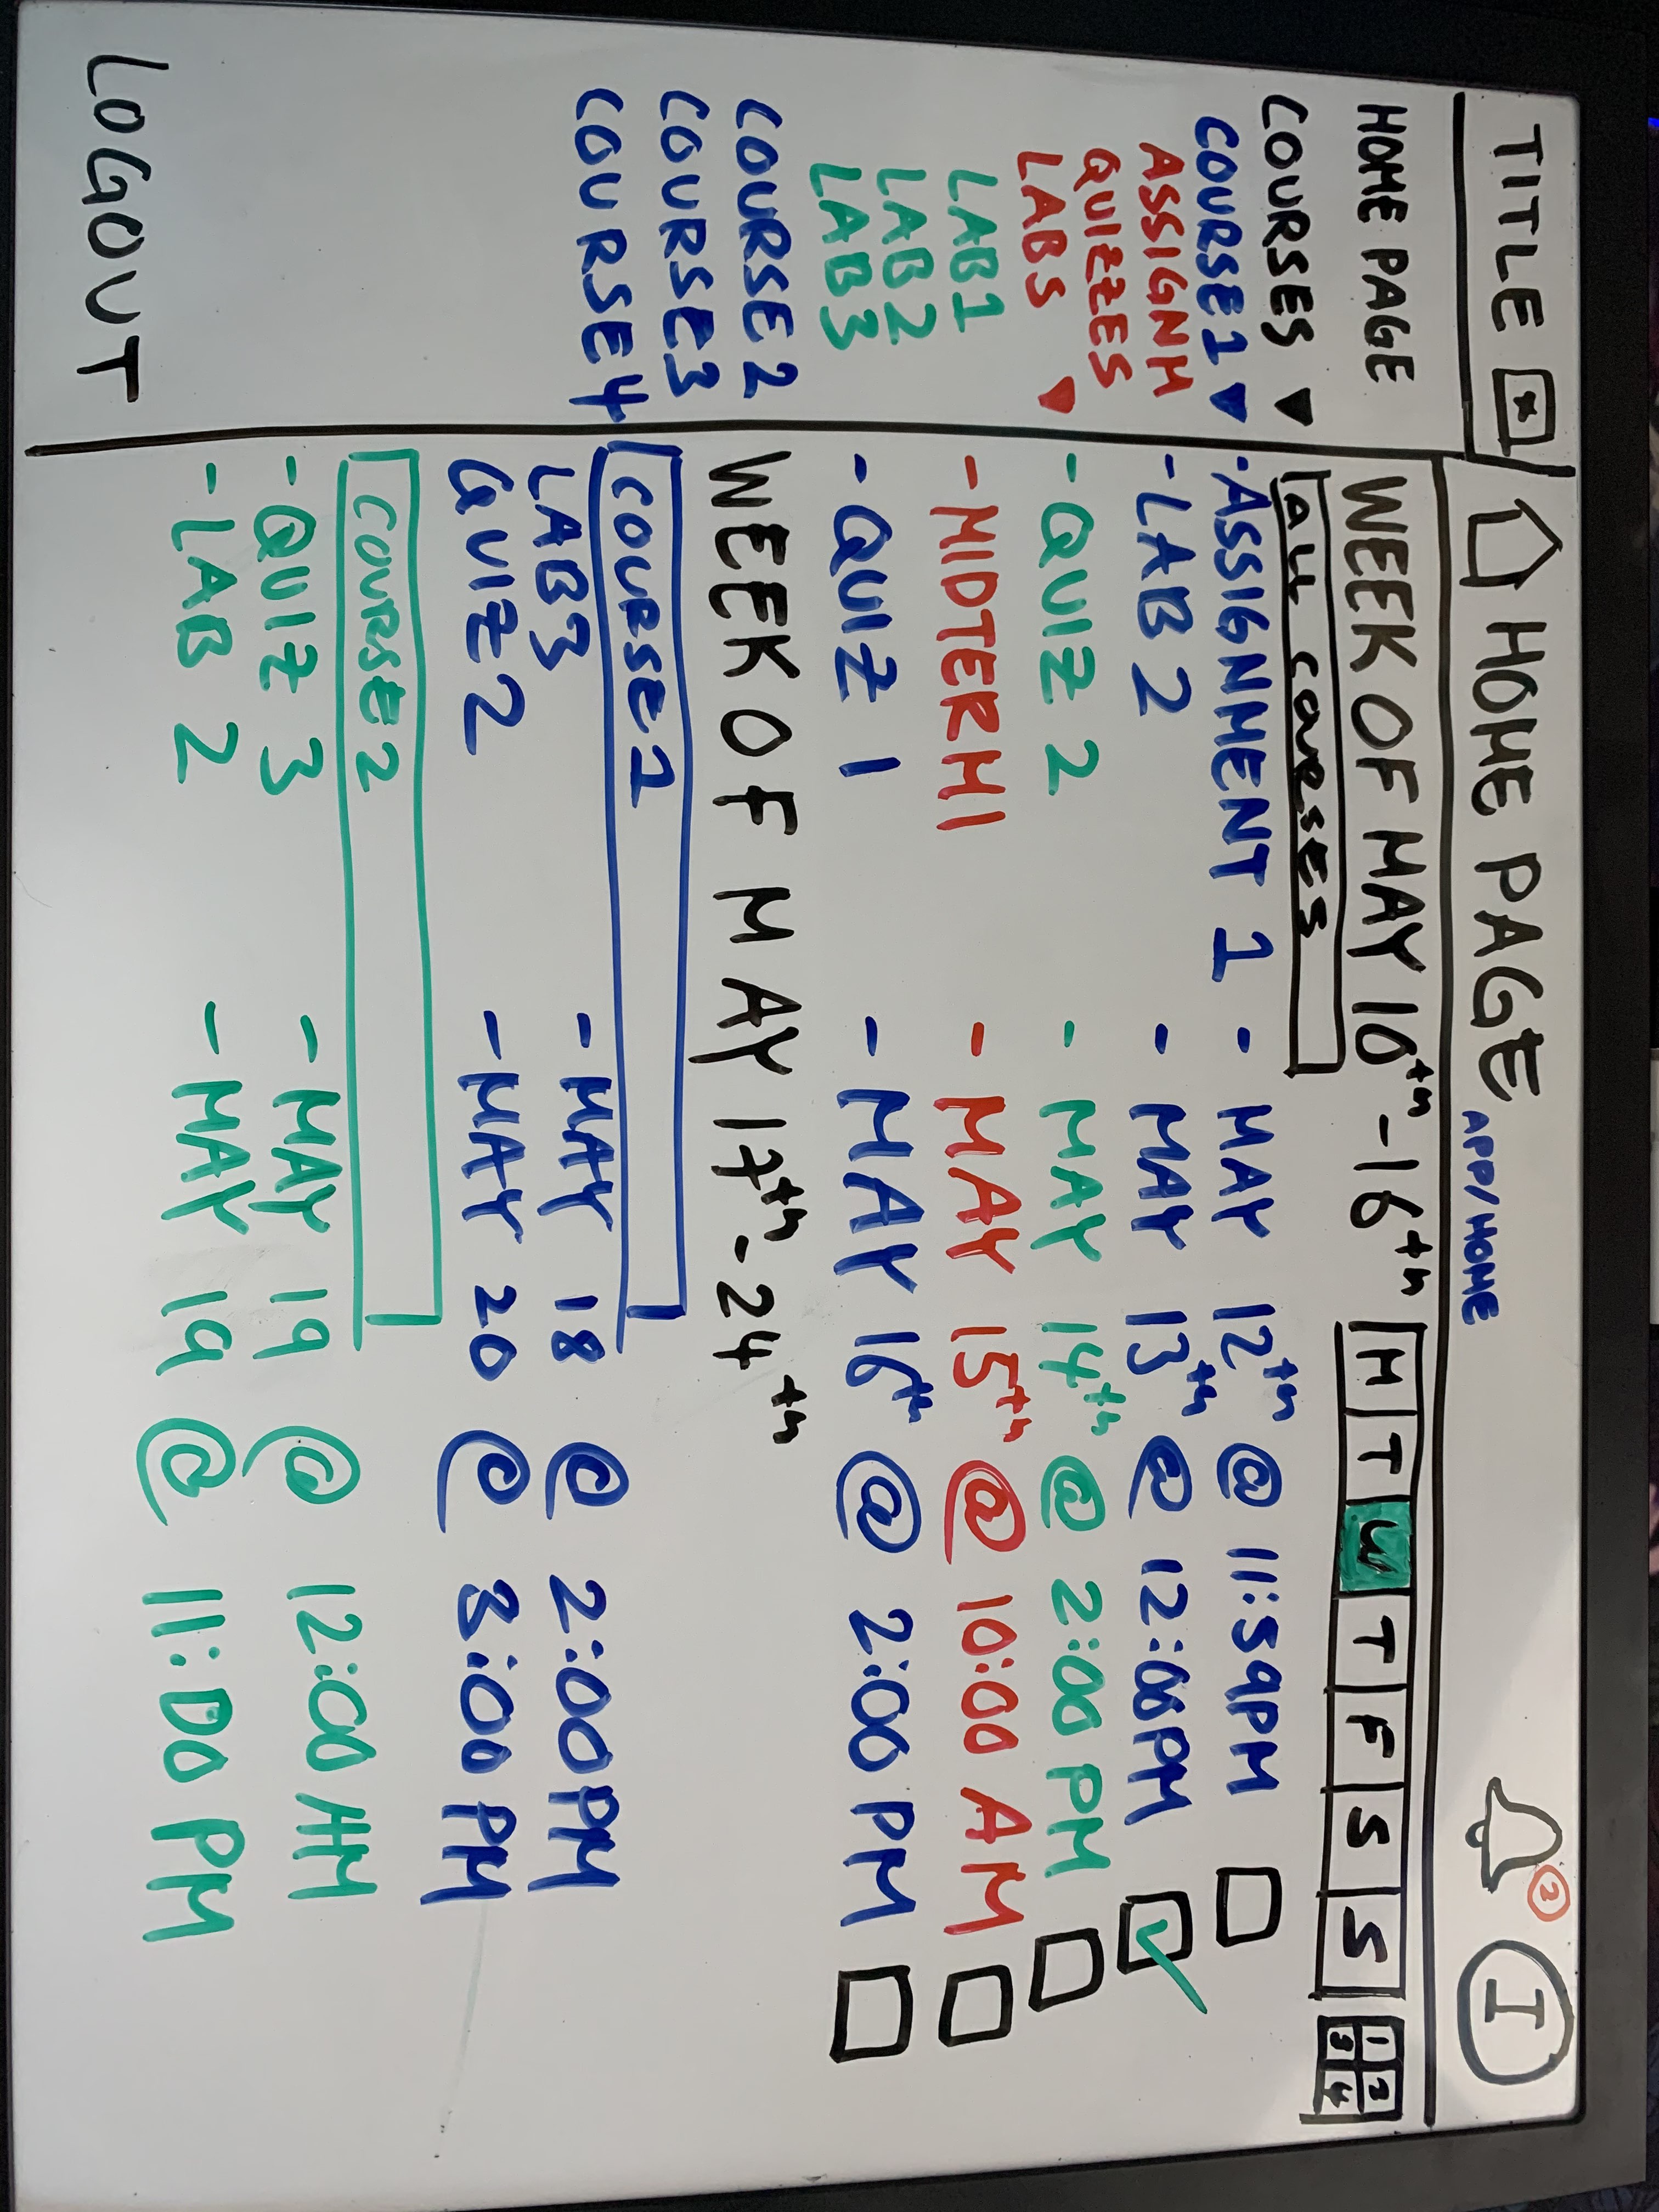 TITLE
HOME PAGE APP/HOME
2
I
HOME PAGE
COURSES
COURSE 1
ASSIGNM
QUIZZES
LABS
LAB1
LAB2
LAB3
COURSE 2
COURSE3
COURSE4
LOGOUT
WEEK OF MAY 10th-16th
M T W T F S S
1 2
3 4
ALL COURSES
-ASSIGNMENT 1 - MAY 12th @ 11:59PM
-LAB 2 - MAY 13th @ 12:00PM
-QUIZ 2 - MAY 14th @ 2:00 PM
-MIDTERM1 - MAY 15th @ 10:00 AM
-QUIZ 1 - MAY 16th @ 2:00 PM
WEEK OF MAY 17th-24th
COURSE 1
LAB3 - MAY 18 @ 2:00PM
QUIZ2 - MAY 20 @ 3:00 PM
COURSE 2
-QUIZ 3 - MAY 19 @ 12:00 AM
-LAB 2 - MAY 19 @ 11:00 PM